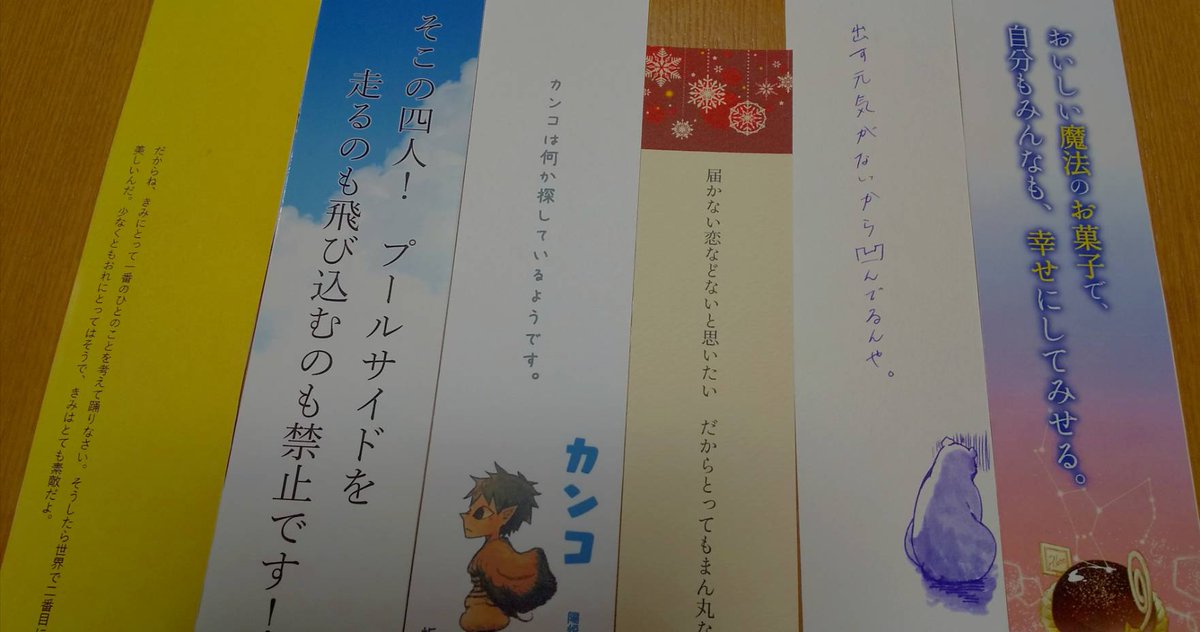 おいしい魔法のお菓子で、
自分もみんなも、幸せにしてみせる。
出す元気がないから凹んでるんや。
届かない恋などないと思いたい　だからとってもまん丸な
カンコは何か探しているようです。
カンコ
そこの四人！　プールサイドを
走るのも飛び込むのも禁止です！
だからね、きみにとって一番のひとのことを考えて踊りなさい。そうしたら世界で二番目に
美しいんだ。少なくともおれにとってはそうで、きみはとても素敵だよ。